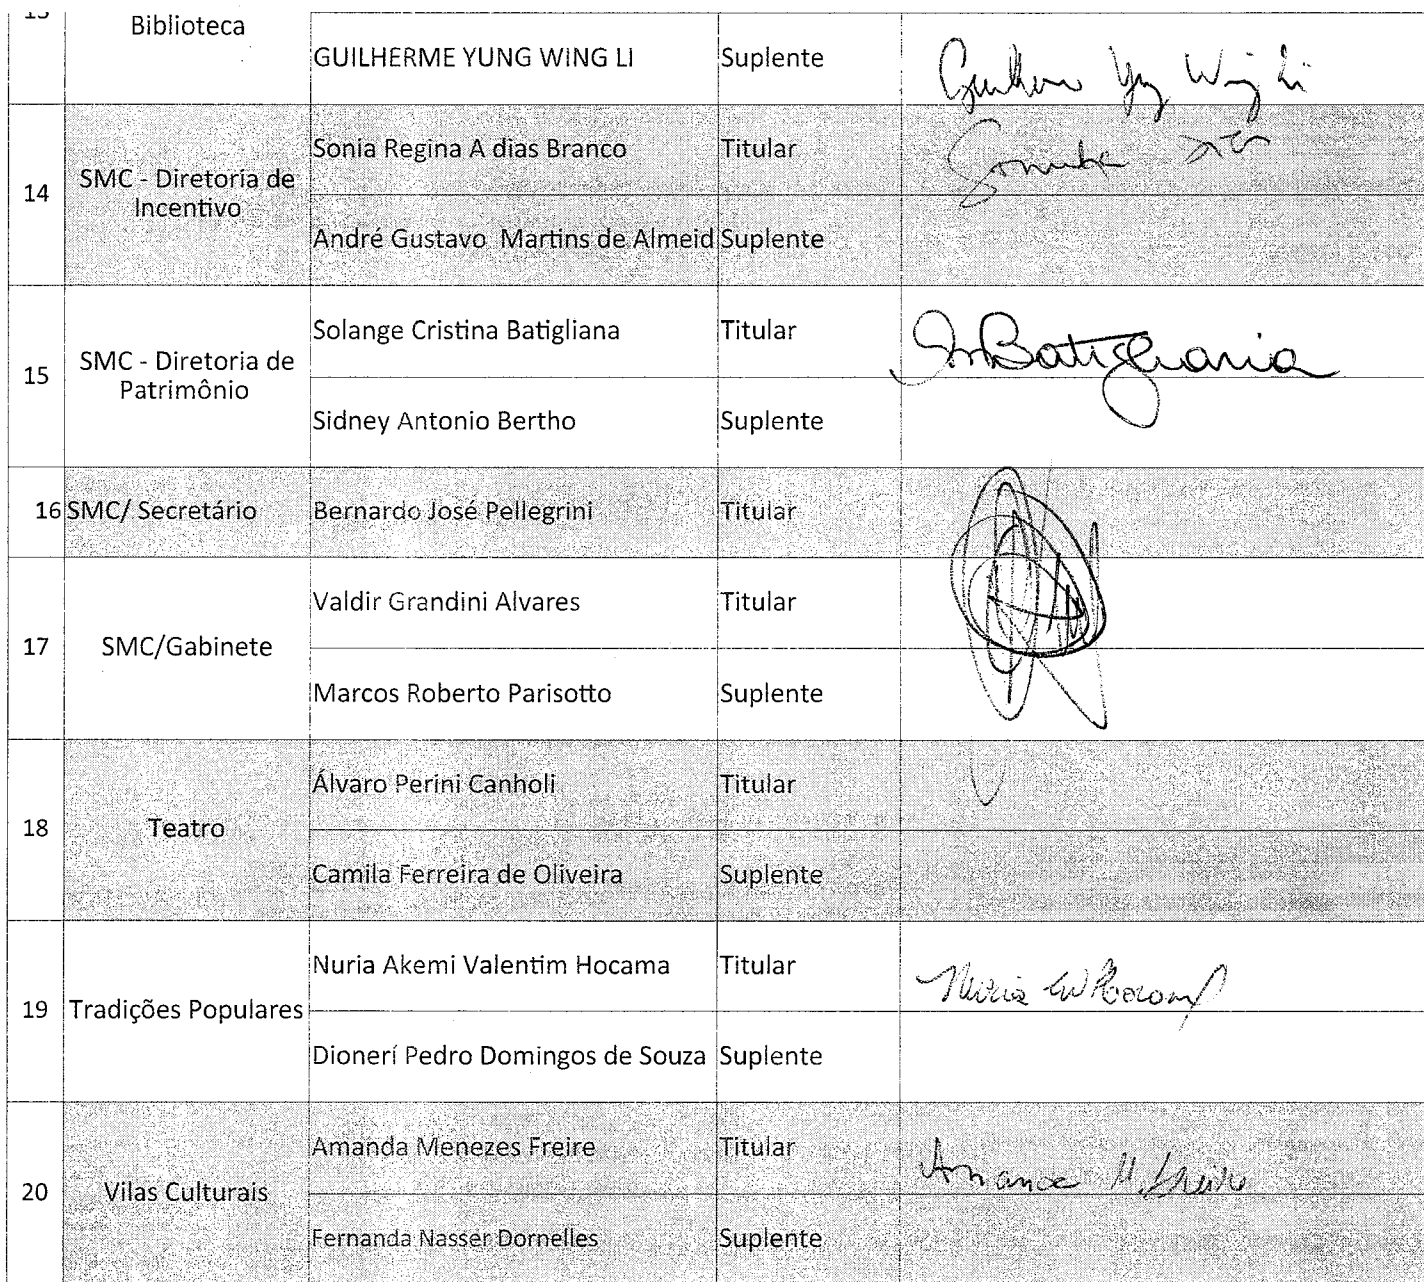 Biblioteca
GUILHERME YUNG WING LI Suplente Guilherme Yung Wing Li
14 SMC - Diretoria de Incentivo
Sonia Regina A dias Branco Titular
André Gustavo Martins de Almeid Suplente
15 SMC - Diretoria de Patrimônio
Solange Cristina Batigliana Titular Batigliana
Sidney Antonio Bertho Suplente
16 SMC/ Secretário Bernardo José Pellegrini Titular
17 SMC/Gabinete
Valdir Grandini Alvares Titular
Marcos Roberto Parisotto Suplente
18 Teatro
Álvaro Perini Canholi Titular
Camila Ferreira de Oliveira Suplente
19 Tradições Populares
Nuria Akemi Valentim Hocama Titular Nuria
Dionerí Pedro Domingos de Souza Suplente
20 Vilas Culturais
Amanda Menezes Freire Titular Amanda M. Freire
Fernanda Nasser Dornelles Suplente